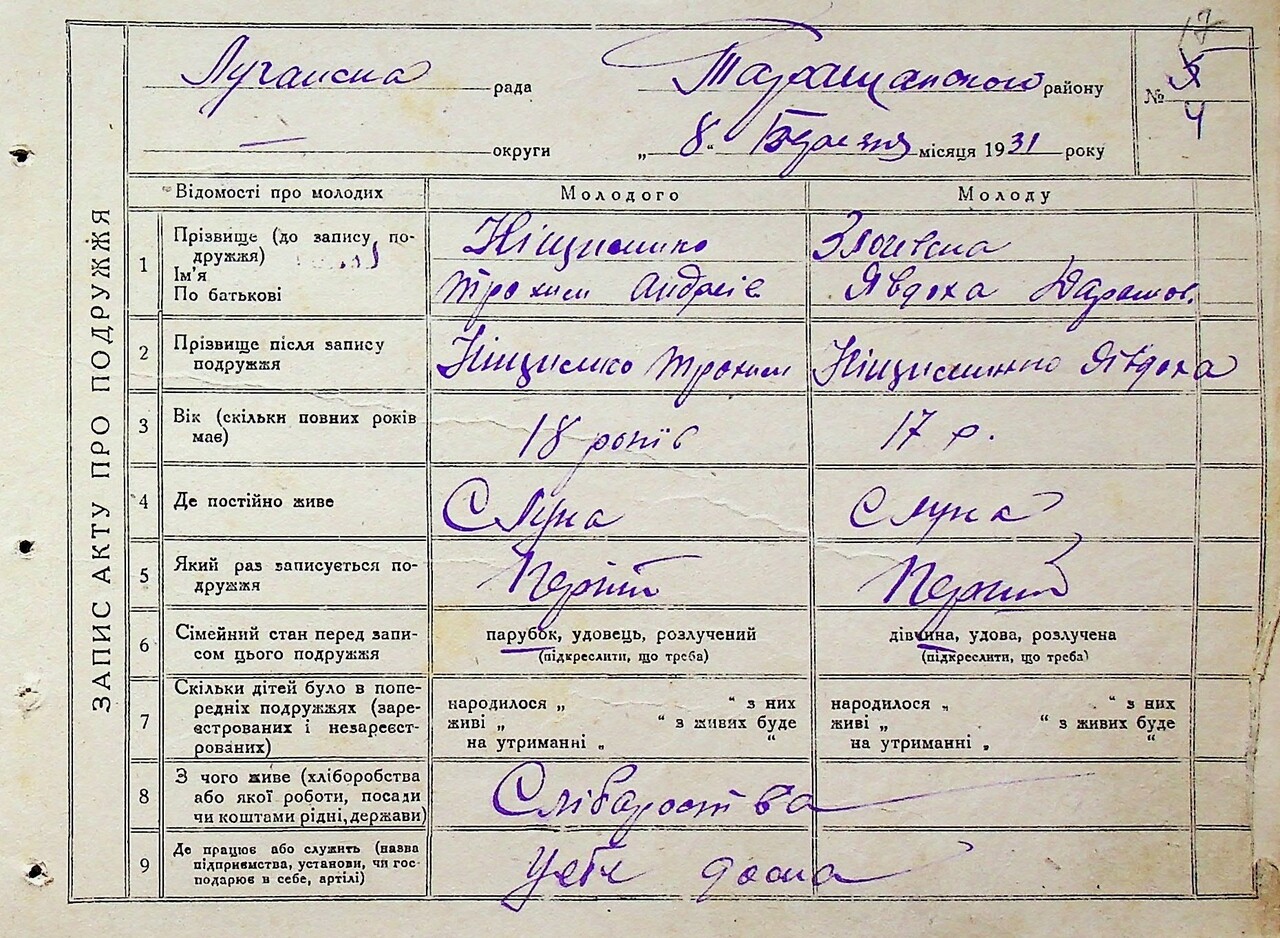 ЗАПИС АКТУ ПРО ПОДРУЖЖЯ
рада Таращанского району
№ 4
округи „ 8 “ місяця 1931 року
Відомості про молодих Молодого Молоду
1 Прізвище (до запису подружжя)
Ім'я
По батькові
Трохим Андріїв Явдоха
2 Прізвище після запису
подружжя
Трохим Явдоха
3 Вік (скільки повних років
має)
18 років 17 р.
4 Де постійно живе С Лука С Лука
5 Який раз записується по-
дружжя
Перший Перший
6 Сімейний стан перед запи-
сом цього подружжя
парубок, удовець, розлучений дівчина, удова, розлучена
(підкреслити, що треба) (підкреслити, що треба)
7 Скільки дітей було в попе-
редніх подружжях (заре-
єстрованих і незареєст-
рованих)
народилося „ “ з них народилося „ “ з них
живі „ “ з живих буде живі „ “ з живих буде
на утриманні „ “ на утриманні „ “
8 З чого живе (хліборобства
або якої роботи, посади
чи коштами рідні, держави)
9 Де працює або служить (назва
підприємства, установи, чи гос-
подарює в себе, артілі)
дома